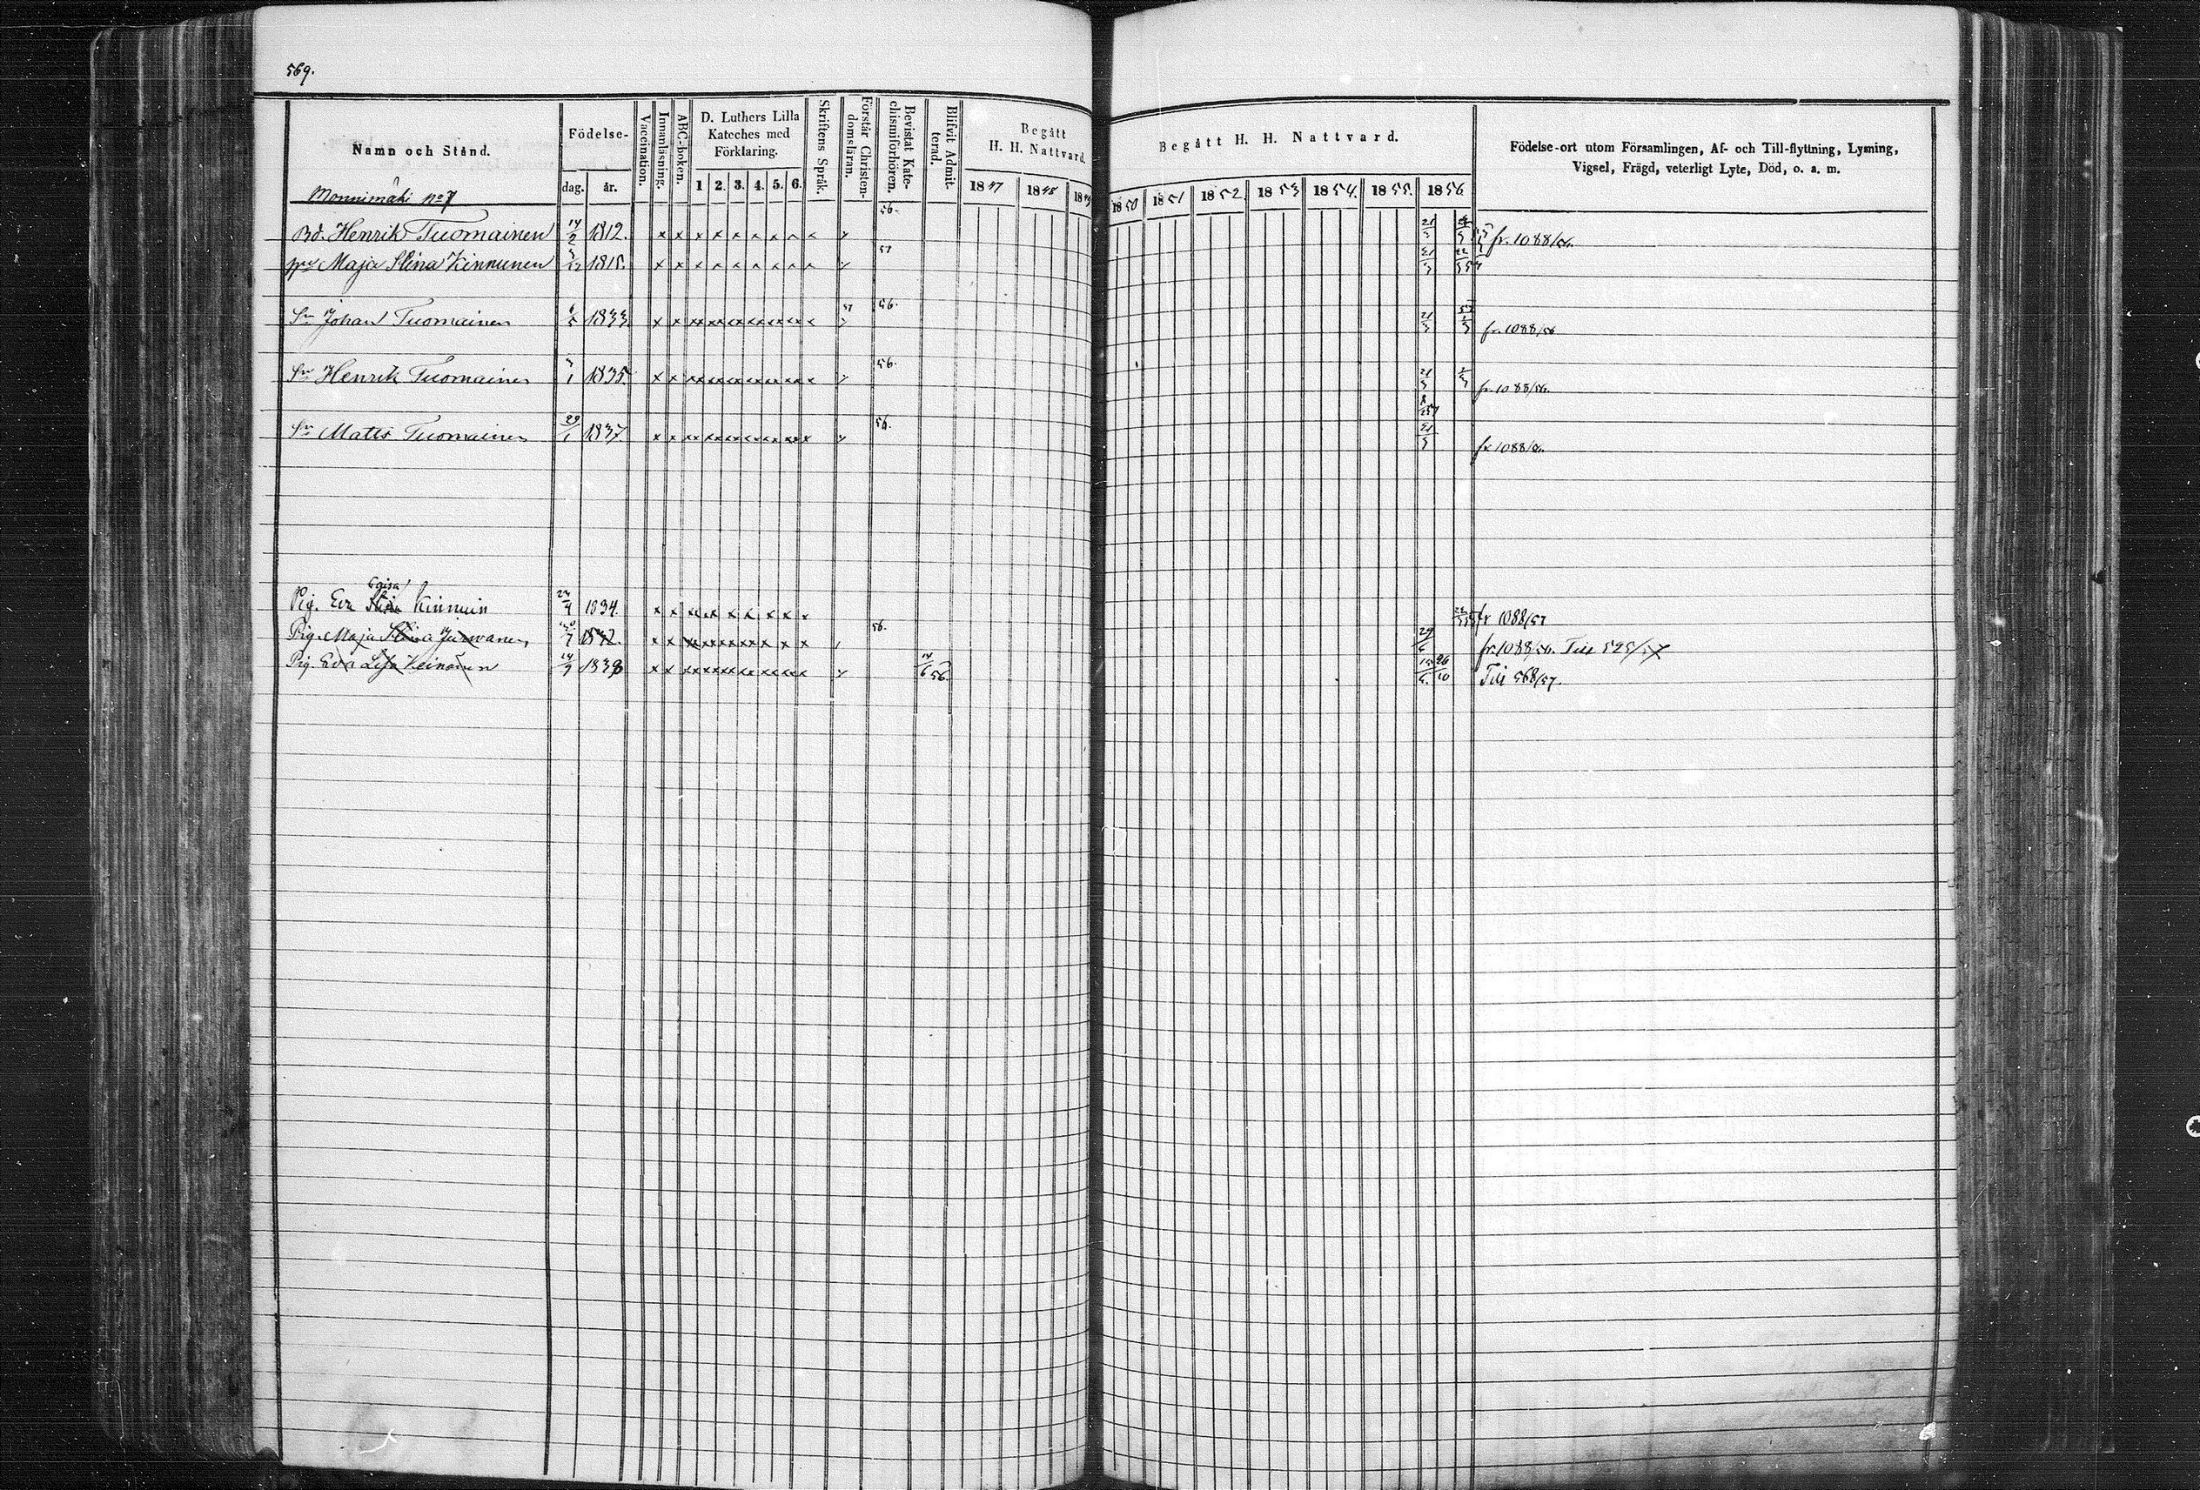 569.
Namn och Stånd.
Födelse-
dag. år.
Vaccination.
Innanläsning.
ABC-boken.
D. Luthers Lilla
Kateches med
Förklaring.
1 2. 3. 4. 5. 6.
Skriftens Språk.
Förstår Christen-
domsläran.
Bevistat Kate-
chismiförhören.
Blifvit Admit-
terad.
Begått
H. H. Nattvard.
1847 1848 1849
Begått H. H. Nattvard.
1850 1851 1852. 1853 1854. 1855. 1856.
Födelse-ort utom Församlingen, Af- och Till-flyttning, Lysning,
Vigsel, Frägd, veterligt Lyte, Död, o. a. m.
Monnimäki No 7
Bd. Henrik Tuomainen 14/2 1812. 56. 21/3 fr. 1088/56.
Maja Stina Kinnunen 1815. 57 21/3
Sn Johan Tuomainen 6/5 1833 57 56. 21/3 fr. 1088/56
Sn Henrik Tuomainen 3/1 1835. 56. 21/3 fr. 1088/56.
Sn Matts Tuomainen 29/1 1837 56. 21/3 fr 1088/56.
Pig. Eva Caisa Stina Kinnuin 24/4 1834. fr 1088/57
Pig. Maja Stina 1832. 56. 29/6 fr. 1088/56. Till 525/57
Pig. Eva Lisa Keinonen 14/9 1838 14/6 56. 15/6. 26/10 Till 568/57.